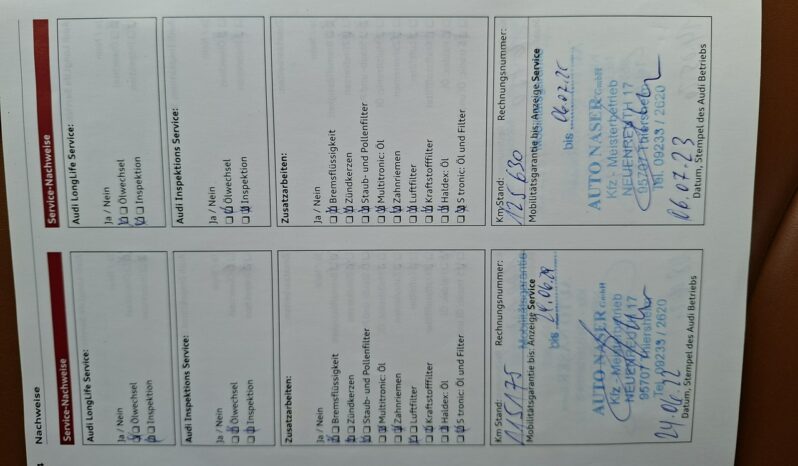 Nachweise
Service-Nachweise
Audi LongLife Service:
Ja / Nein
Ölwechsel
Inspektion
Audi Inspektions Service:
Ja / Nein
Ölwechsel
Inspektion
Zusatzarbeiten:
Ja / Nein
Bremsflüssigkeit
Zündkerzen
Staub- und Pollenfilter
Multitronic: Öl
Zahnriemen
Luftfilter
Kraftstofffilter
Haldex: Öl
S tronic: Öl und Filter
Km Stand: Rechnungsnummer:
115175
Mobilitätsgarantie bis: Anzeige Service
Mobilitätsgarantie
bis 24.06.24
AUTO NASER GmbH
Kfz - Meisterbetrieb
NEUENREUTH 17
95707 Thiersheim
Tel. 09233 / 2620
24.06.22
Datum, Stempel des Audi Betriebs
Service-Nachweise
Audi LongLife Service:
Ja / Nein
Ölwechsel
Inspektion
Audi Inspektions Service:
Ja / Nein
Ölwechsel
Inspektion
Zusatzarbeiten:
Ja / Nein
Bremsflüssigkeit
Zündkerzen
Staub- und Pollenfilter
Multitronic: Öl
Zahnriemen
Luftfilter
Kraftstofffilter
Haldex: Öl
S tronic: Öl und Filter
Km Stand: Rechnungsnummer:
125630
Mobilitätsgarantie bis: Anzeige Service
bis 06.07.25
AUTO NASER GmbH
Kfz - Meisterbetrieb
NEUENREUTH 17
95707 Thiersheim
Tel. 09233 / 2620
06.07.23
Datum, Stempel des Audi Betriebs